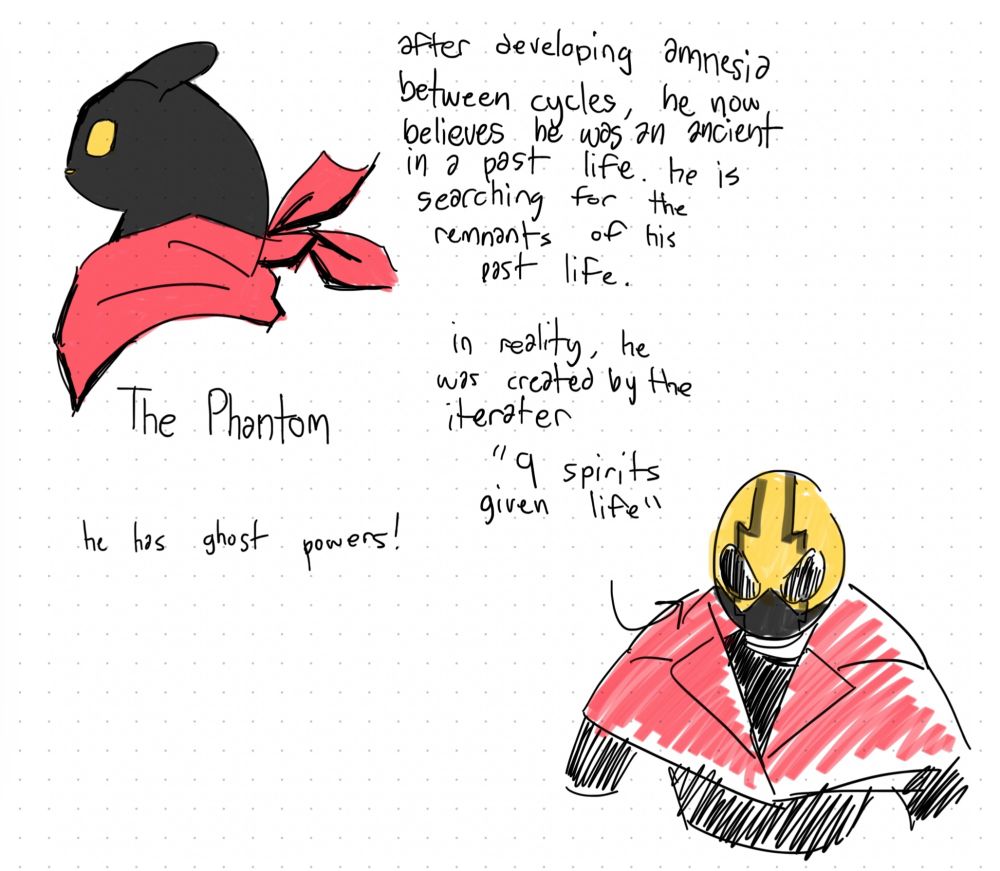 after developing amnesia
between cycles, he now
believes he was an ancient
in a past life. he is
searching for the
remnants of his
past life.
in reality, he
was created by the
iterater
"9 spirits
given life"
The Phantom
he has ghost powers!